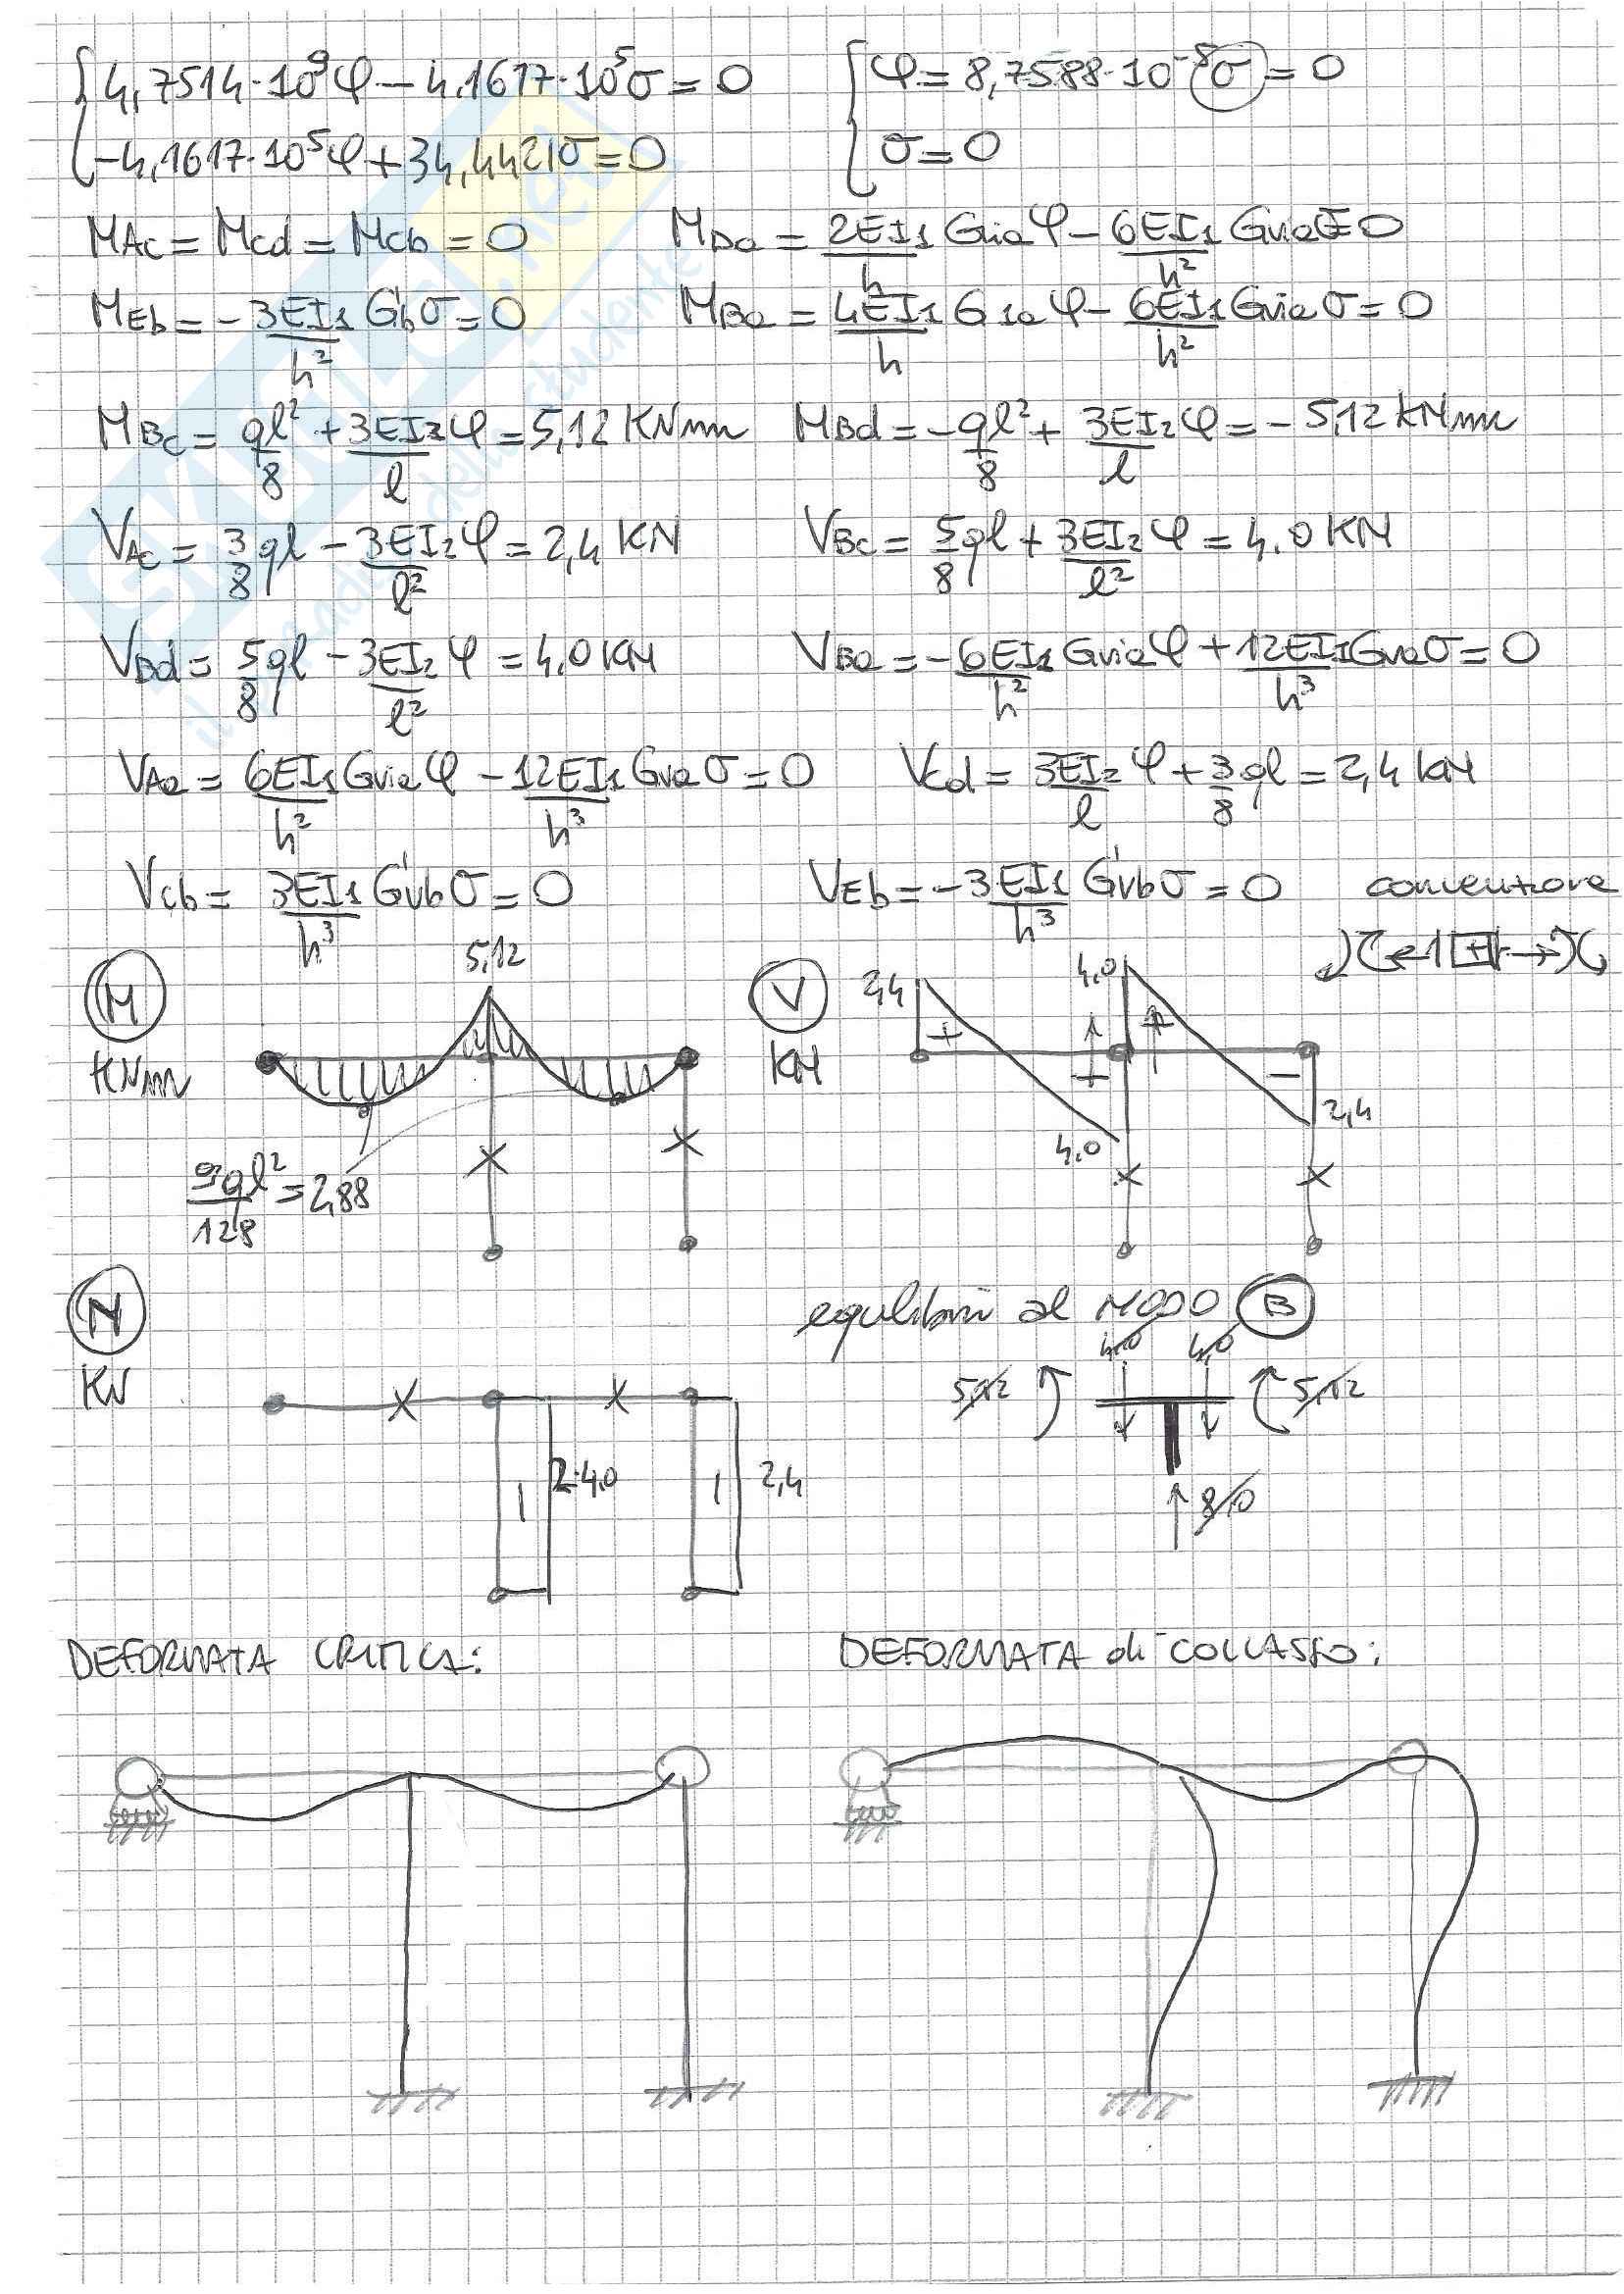 4,7514·10⁹φ − 4,1617·10⁵σ = 0
φ = 8,7588·10⁻⁵σ = 0
−4,1617·10⁵φ + 34,4421σ = 0
σ = 0
MAc = Mcd = Mcb = 0
MDa = 2EI1/h G11a φ − 6EI1/h² Gv1a σ = 0
MEb = −3EI1/h² G'b σ = 0
MBa = 4EI1/h G1a φ − 6EI1/h² Gv1a σ = 0
MBc = ql²/8 + 3EI2/l φ = 5,12 KNm
MBd = −ql²/8 + 3EI2/l φ = −5,12 kNm
VAc = 3/8 ql − 3EI2/l² φ = 2,4 KN
VBc = 5/8 ql + 3EI2/l² φ = 4.0 KN
VBd = 5/8 ql − 3EI2/l² φ = 4,0 KN
VBa = −6EI1/h² Gv1a φ + 12EI1/h³ Gva σ = 0
VAa = 6EI1/h² Gv1a φ − 12EI1/h³ Gva σ = 0
Vcd = 3EI2/l φ + 3/8 ql = 2,4 kN
Vcb = 3EI1/h³ G'vb σ = 0
VEb = −3EI1/h³ G'vb σ = 0
convenzione
+
M
KNm
5,12
9ql²/128 = 2,88
V
KN
2,4
+
4,0
+
4,0
−
2,4
N
KN
2·4,0
2,4
equilibri al NODO B
4,0
4,0
5,12
5,12
8,0
DEFORMATA CRITICA:
DEFORMATA di COLLASSO: